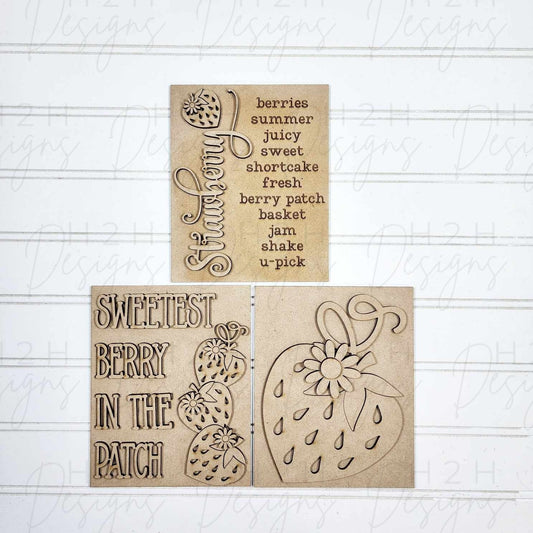 Strawberry
berries
summer
juicy
sweet
shortcake
fresh
berry patch
basket
jam
shake
u-pick
SWEETEST
BERRY
IN THE
PATCH
H2H
Designs